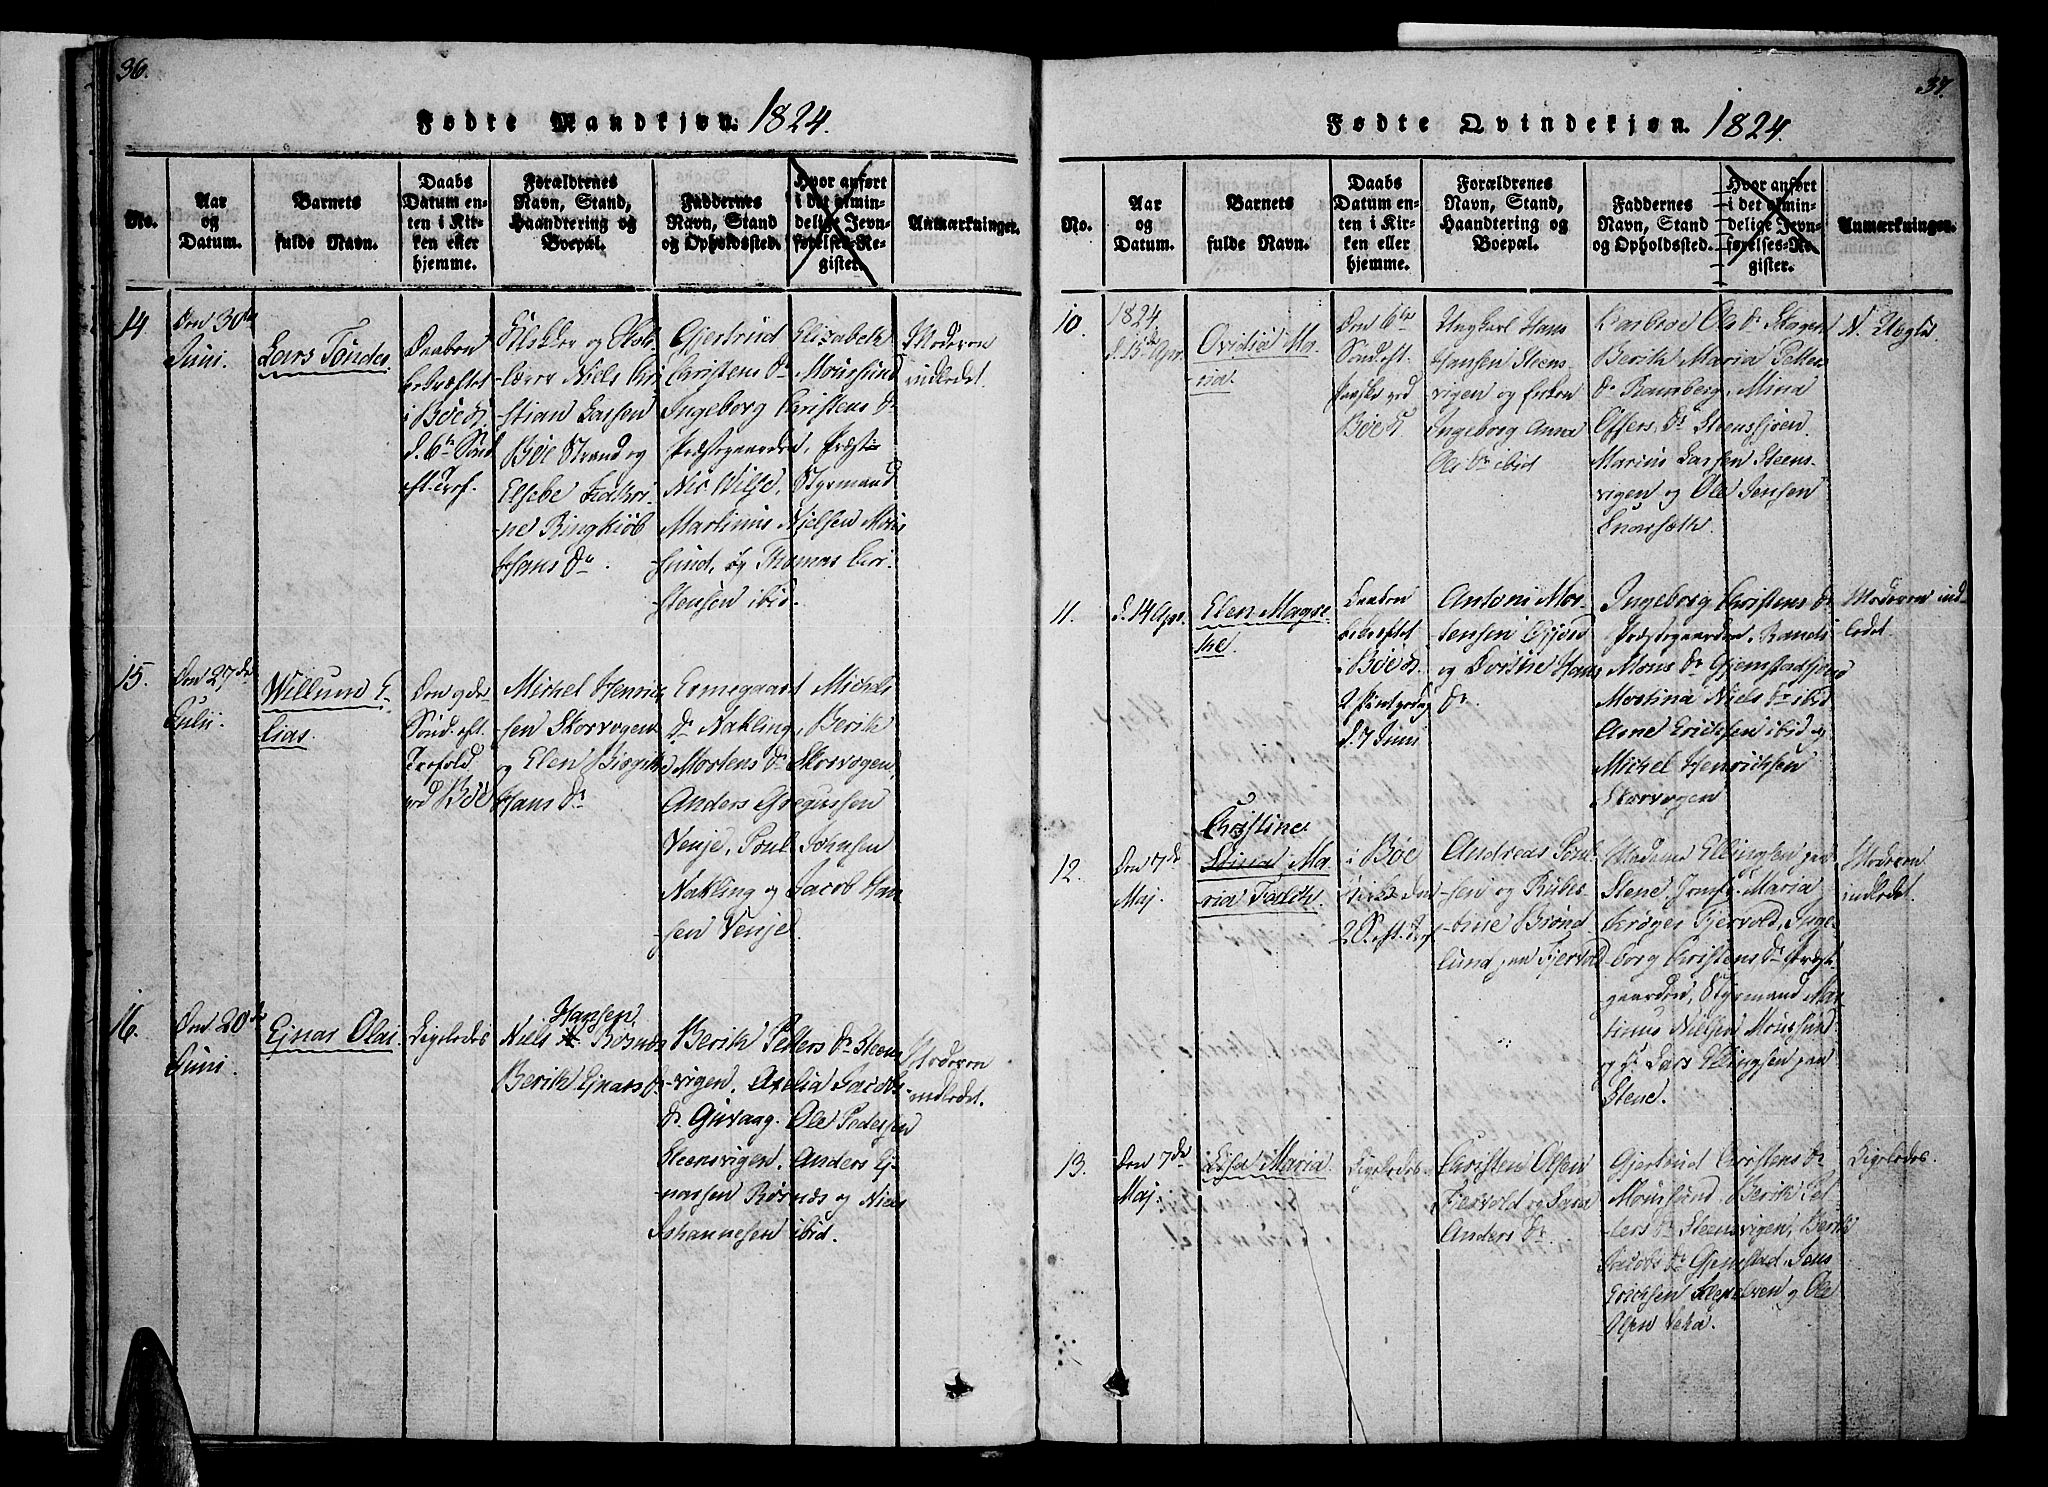 36.
Fødte Mandkjøn. 1824.
No.
Aar
og
Datum.
Barnets
fulde Navn.
Daabs
Datum en-
ten i Kir-
ken eller
hjemme.
Forældrenes
Navn, Stand,
Haandtering og
Boepæl.
Faddernes
Navn, Stand
og Opholdssted.
Hvor anført
i det almin-
delige Jevn-
førelses-Re-
gister.
Anmærkninger.
14
Den 30te
Juni.
Lars Tønder
Daaben
bekræftet
i Bøe K
d. 6te Sønd
eft. Tref.
Klokker og Skol-
lærer Niels Chri
stian Larsen
Bøe Strand og
Elsebe
ne Ringkiøb
Hans Dr.
Gjertrud Elizabeth
Christens Dr Møusund
Ingeborg Christens Dr
Præstegaarden,
Nic Wilse, Styrmand
Martinus Nielsen Møu
sund, og Thomas Chri-
stensen ibid.
Moderen
indledet.
15.
Den 27de
Julii.
Willum E-
lias.
Den 9de
Sønd. eft.
Trefold
ved Bøe
Michel Henrich
sen Skorvogen
og Elen Birgith
Hans Dr
Ermegaard Michels
Dr Nakling, Berith
Mortens Dr Skorvogen,
Anders Gregussen
Venje, Poul Johnsen
Nakling og Jacob Han
sen Venje.
16.
Den 20de
Juni.
Ejnar Olai.
Ligeledes
Hansen
Niels Røsnæs
Berith Ejnars Dr
Berith Petters Dr Steens
vigen, Axelia Jacobs
Dr Guvaag. Ole Pedersen
Steensvigen, Anders Ej-
narsen Røsnæs og Niels
Johannesen ibid.
Moderen
indledet.
37.
Fødte Qvindekjøn. 1824.
No.
Aar
og
Datum.
Barnets
fulde Navn.
Daabs
Datum en-
ten i Kir-
ken eller
hjemme.
Forældrenes
Navn, Stand,
Haandtering og
Boepæl.
Faddernes
Navn, Stand
og Opholdssted.
Hvor anført
i det almin-
delige Jevn-
førelses-Re-
gister.
Anmærkninger.
10.
1824
d. 15de Apr.
Ovidia Ma-
ria.
Den 6te
Sønd. eft.
Paaske ved
Bøe K
Ungkarl Hans
Hansen Steens-
vigen og Enken
Ingeborg Anna
Ols Dr ibid
Barbroe Ols Dr Skagen
Berith Maria Petter
Dr Ramberg, Mina
Offers Dr Steensjøen
Marius Larsen Steens-
vigen og Ole Jensen
Snarsæth.
N. Uægte
11.
d. 14 Apr.
Elen Magre-
the.
Daaben
bekræftet
i Bøe K
2 Pintzedag
d. 7 Juni
Antoni Mor-
tensen
og Dorthe Hans
Dr.
Ingeborg Christens Dr
Præstegaarden, Randi
Mons Dr Gjemstadfjord
Martina Niels Dr ibid
Arne Erichsen ibid og
Michel Henrichsen
Skorvogen
Moderen ind-
ledet.
12.
Den 7de
Maj.
Christine
Ma-
ria Falch.
i Bøe
Kirke den
2 S. eft.
Andreas Poul-
sen og
tine Brønd-
lund paa Fjervold
Madame Ellingsen paa
Stene, Jomf. Maria
Krøger Fjervold, Inge-
borg Christens Dr Præst-
gaarden, Styrmand Mar
tinus Nielsen Møusund
og Sr Lars Ellingsen paa
Stene.
Moderen
indledet.
13.
Den 7de
Maj.
Lisa Maria.
Ligeledes
Christen Olsen
Fiervold og Sara
Anders Dr
Gjertrud Christens Dr
Møusund, Berith Pet-
ters Dr Steensvigen, Berith
Jacobs Dr Gjemstad, Jens
Erichsen og Ole
Olsen Veha.
Ligeledes.